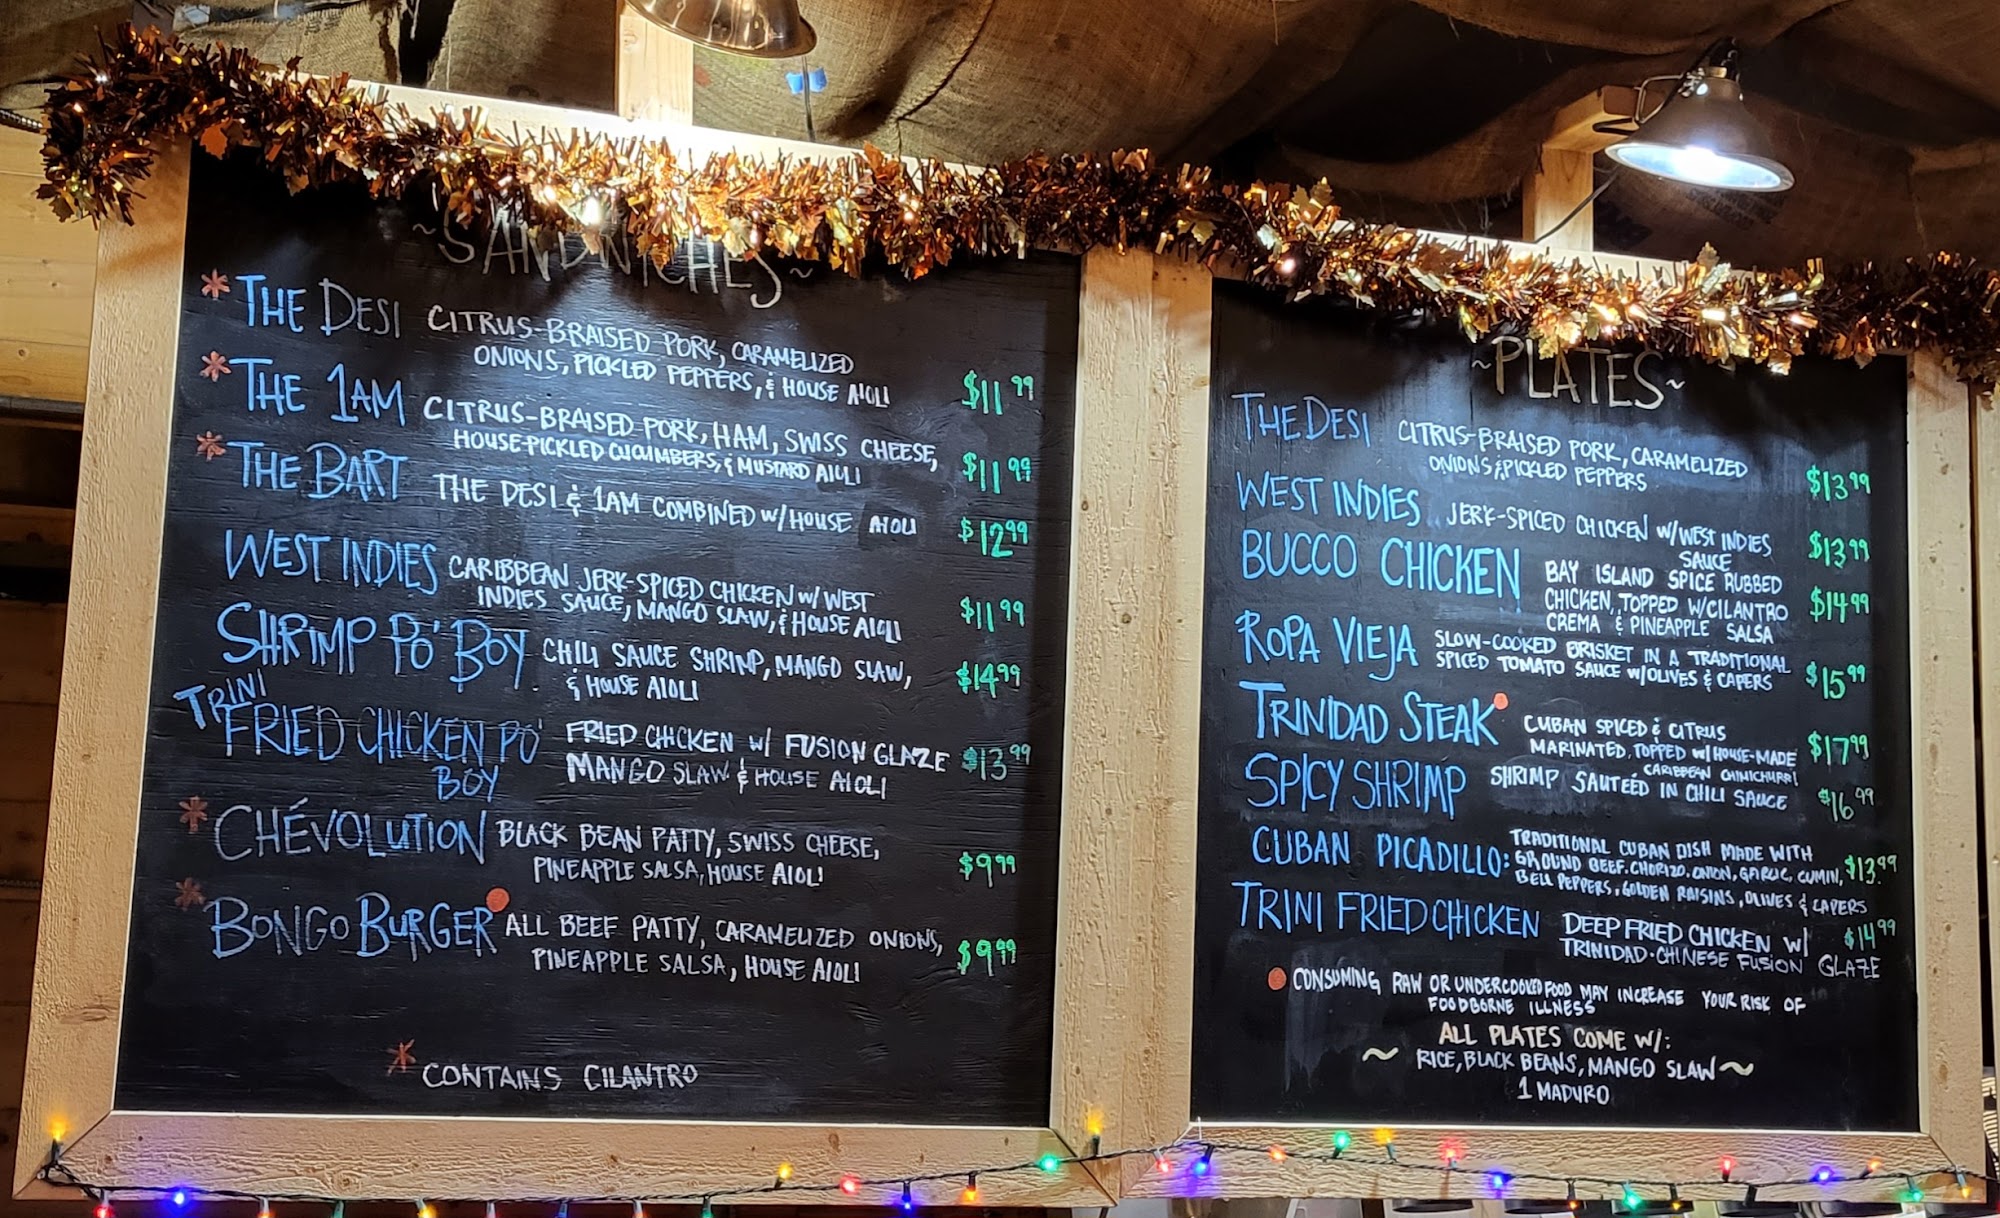 ~SANDWICHES~
* THE DESI CITRUS-BRAISED PORK, CARAMELIZED
ONIONS, PICKLED PEPPERS, & HOUSE AIOLI $11.99
* THE 1AM CITRUS-BRAISED PORK, HAM, SWISS CHEESE,
HOUSE-PICKLED CUCUMBERS, & MUSTARD AIOLI $11.99
* THE BART THE DESI & 1AM COMBINED W/HOUSE AIOLI $12.99
WEST INDIES CARIBBEAN JERK-SPICED CHICKEN W/ WEST
INDIES SAUCE, MANGO SLAW, & HOUSE AIOLI $11.99
SHRIMP PO' BOY CHILI SAUCE SHRIMP, MANGO SLAW,
& HOUSE AIOLI $14.99
TRINI
FRIED CHICKEN PO' FRIED CHICKEN W/ FUSION GLAZE $13.99
BOY MANGO SLAW & HOUSE AIOLI
* CHÉVOLUTION BLACK BEAN PATTY, SWISS CHEESE,
PINEAPPLE SALSA, HOUSE AIOLI $9.99
* BONGO BURGER ALL BEEF PATTY, CARAMELIZED ONIONS,
PINEAPPLE SALSA, HOUSE AIOLI $9.99
* CONTAINS CILANTRO
~PLATES~
THE DESI CITRUS-BRAISED PORK, CARAMELIZED
ONIONS & PICKLED PEPPERS $13.99
WEST INDIES JERK-SPICED CHICKEN W/WEST INDIES
SAUCE $13.99
BUCCO CHICKEN BAY ISLAND SPICE RUBBED
CHICKEN, TOPPED W/CILANTRO $14.99
CREMA & PINEAPPLE SALSA
ROPA VIEJA SLOW-COOKED BRISKET IN A TRADITIONAL
SPICED TOMATO SAUCE W/OLIVES & CAPERS $15.99
TRINIDAD STEAK CUBAN SPICED & CITRUS
MARINATED, TOPPED W/HOUSE-MADE $17.99
CARIBBEAN CHIMICHURRI
SPICY SHRIMP SHRIMP SAUTEÉD IN CHILI SAUCE $16.99
CUBAN PICADILLO: TRADITIONAL CUBAN DISH MADE WITH
GROUND BEEF. CHORIZO. ONION, GARLIC, CUMIN, $13.99
BELL PEPPERS, GOLDEN RAISINS, OLIVES & CAPERS
TRINI FRIED CHICKEN DEEP FRIED CHICKEN W/ $14.99
TRINIDAD-CHINESE FUSION GLAZE
CONSUMING RAW OR UNDERCOOKED FOOD MAY INCREASE YOUR RISK OF
FOODBORNE ILLNESS
ALL PLATES COME W/:
~ RICE, BLACK BEANS, MANGO SLAW ~
1 MADURO